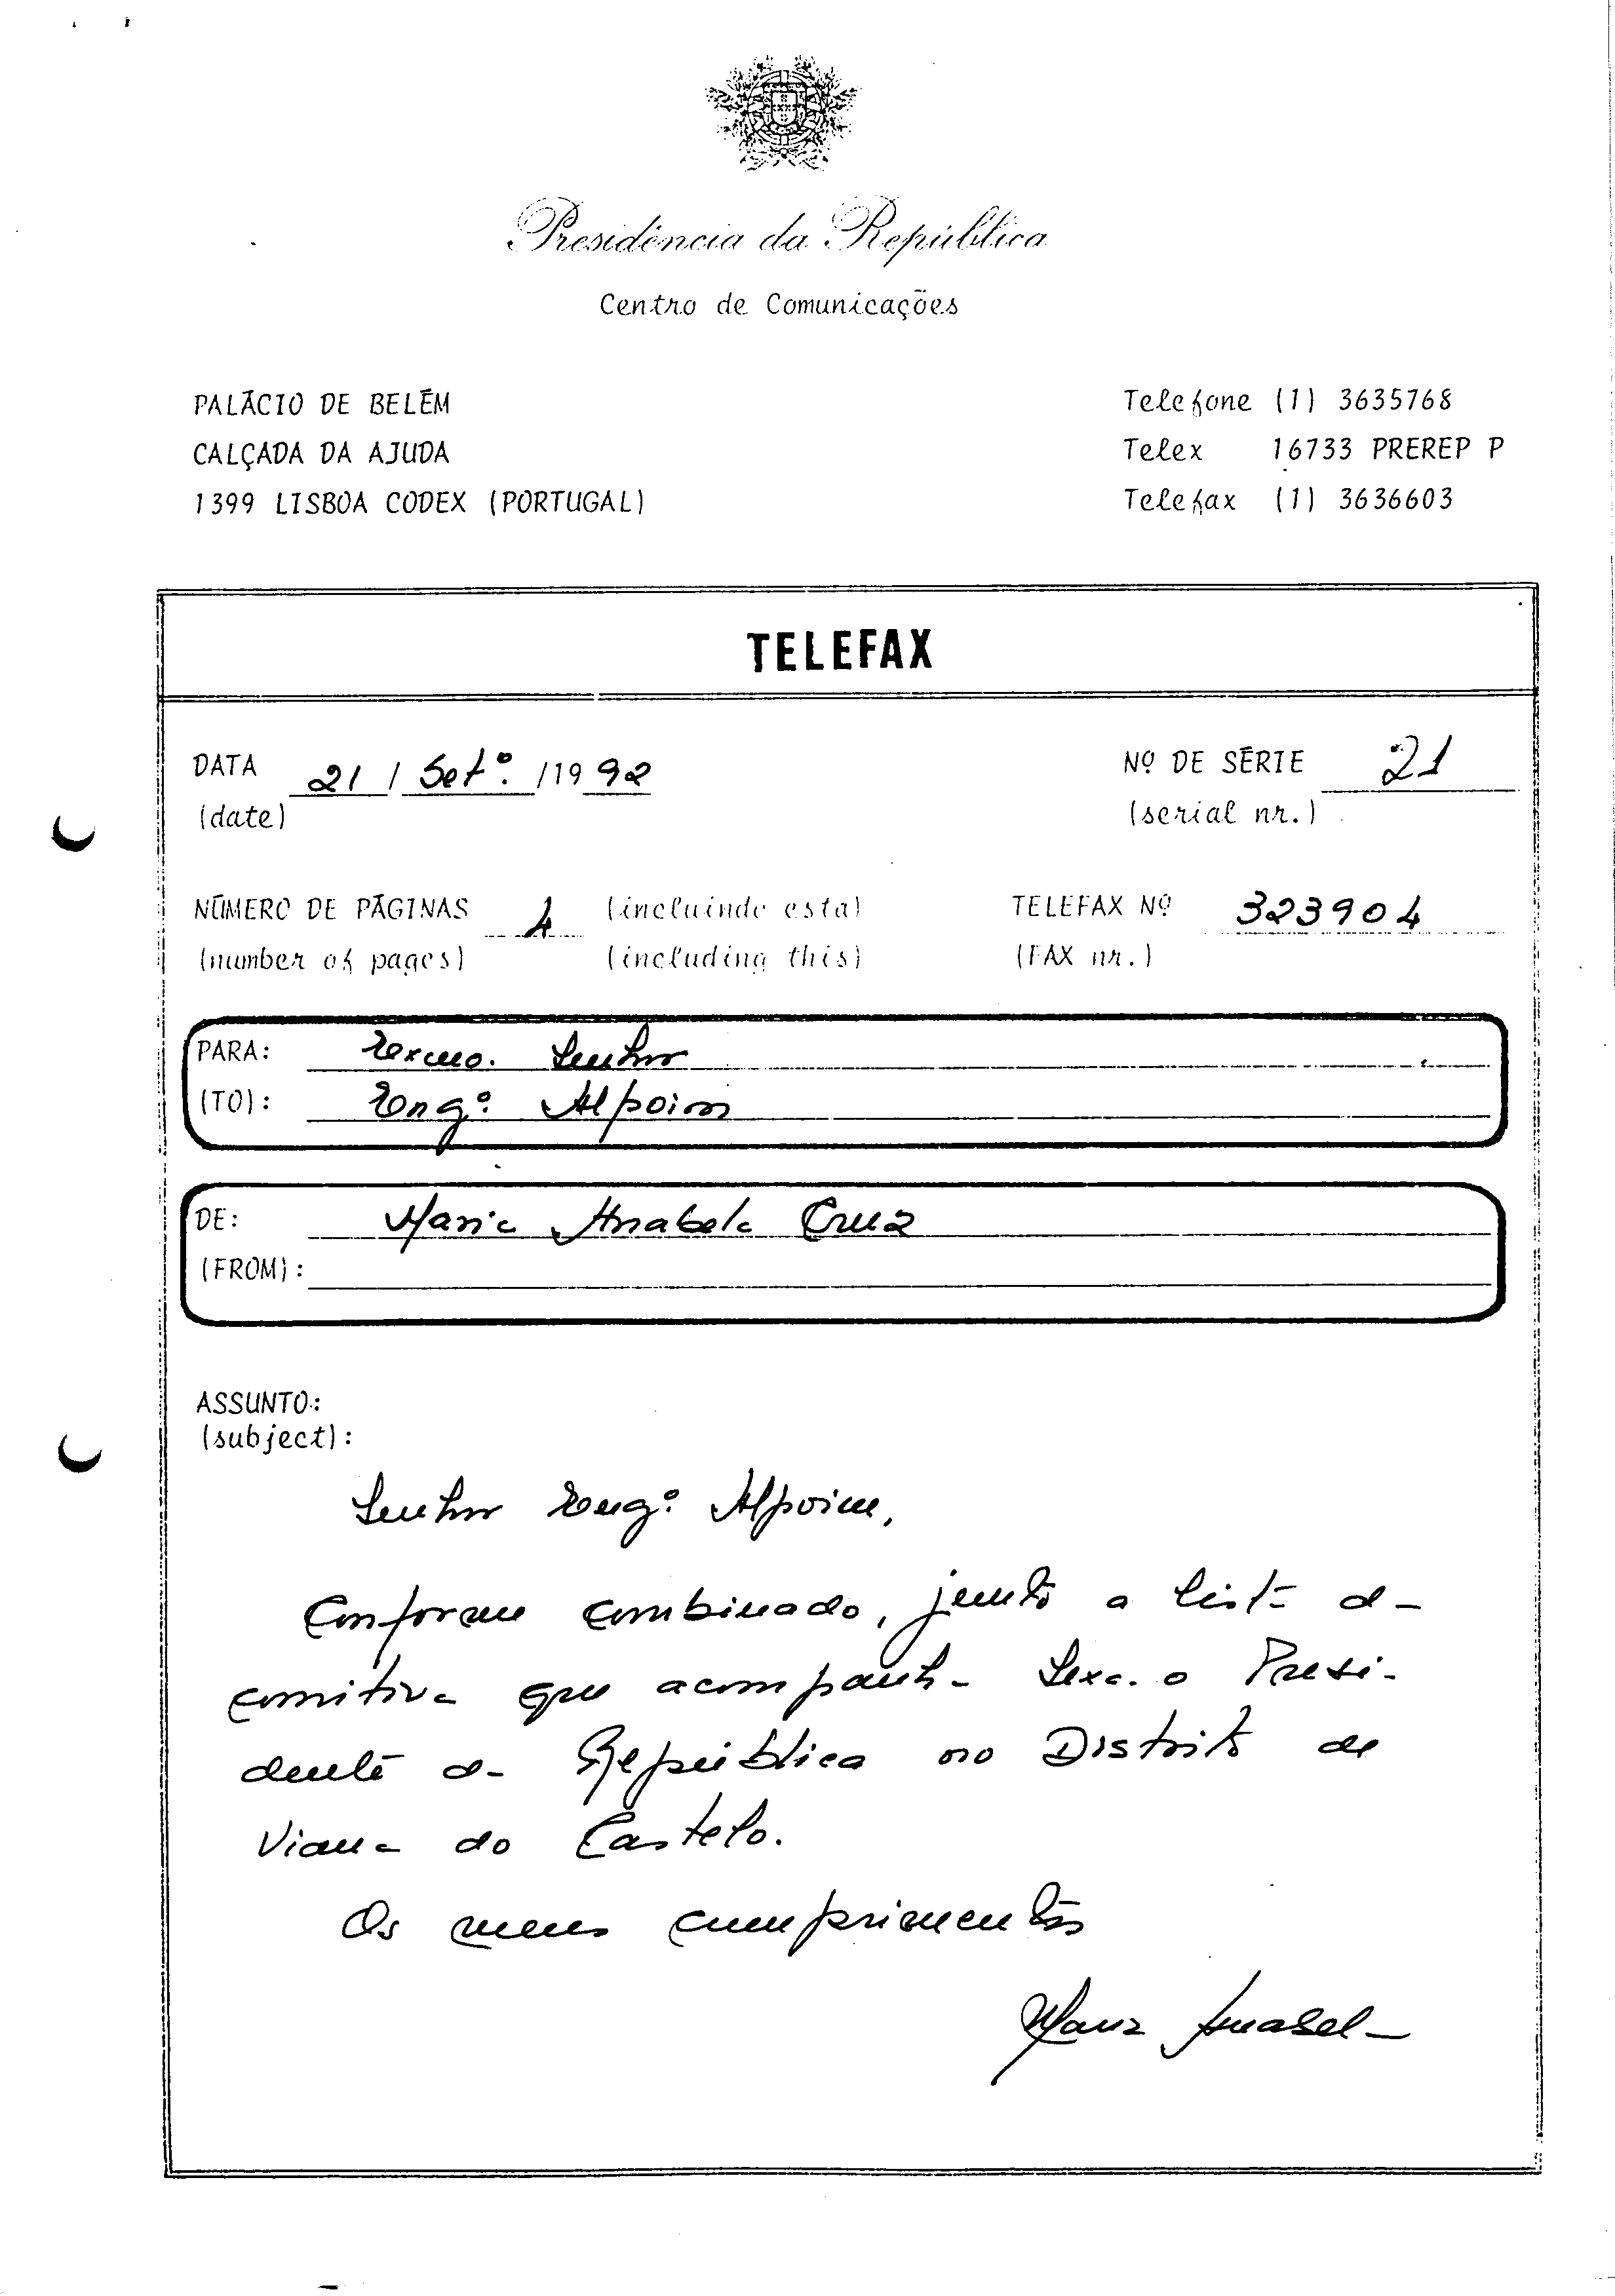 Presidência da República
Centro de Comunicações
PALÁCIO DE BELÉM
CALÇADA DA AJUDA
1399 LISBOA CODEX (PORTUGAL)
Telefone (1) 3635768
Telex 16733 PREREP P
Telefax (1) 3636603
TELEFAX
DATA 21 / Setº. /1992
(date)
Nº DE SÉRIE 21
(serial nr.)
NÚMERO DE PÁGINAS 4 (incluindo esta)
(number of pages) (including this)
TELEFAX Nº 323904
(FAX nr.)
PARA: Excmo. Senhor
(TO): Engº. Alpoim
DE: Maria Anabela Cruz
(FROM):
ASSUNTO:
(subject):
Senhor Engº. Alpoim,
Conforme combinado, junto a lista da
comitiva que acompanha Sexa. o Presi-
dente da República no Distrito de
Viana do Castelo.
Os meus cumprimentos
Maria Anabela